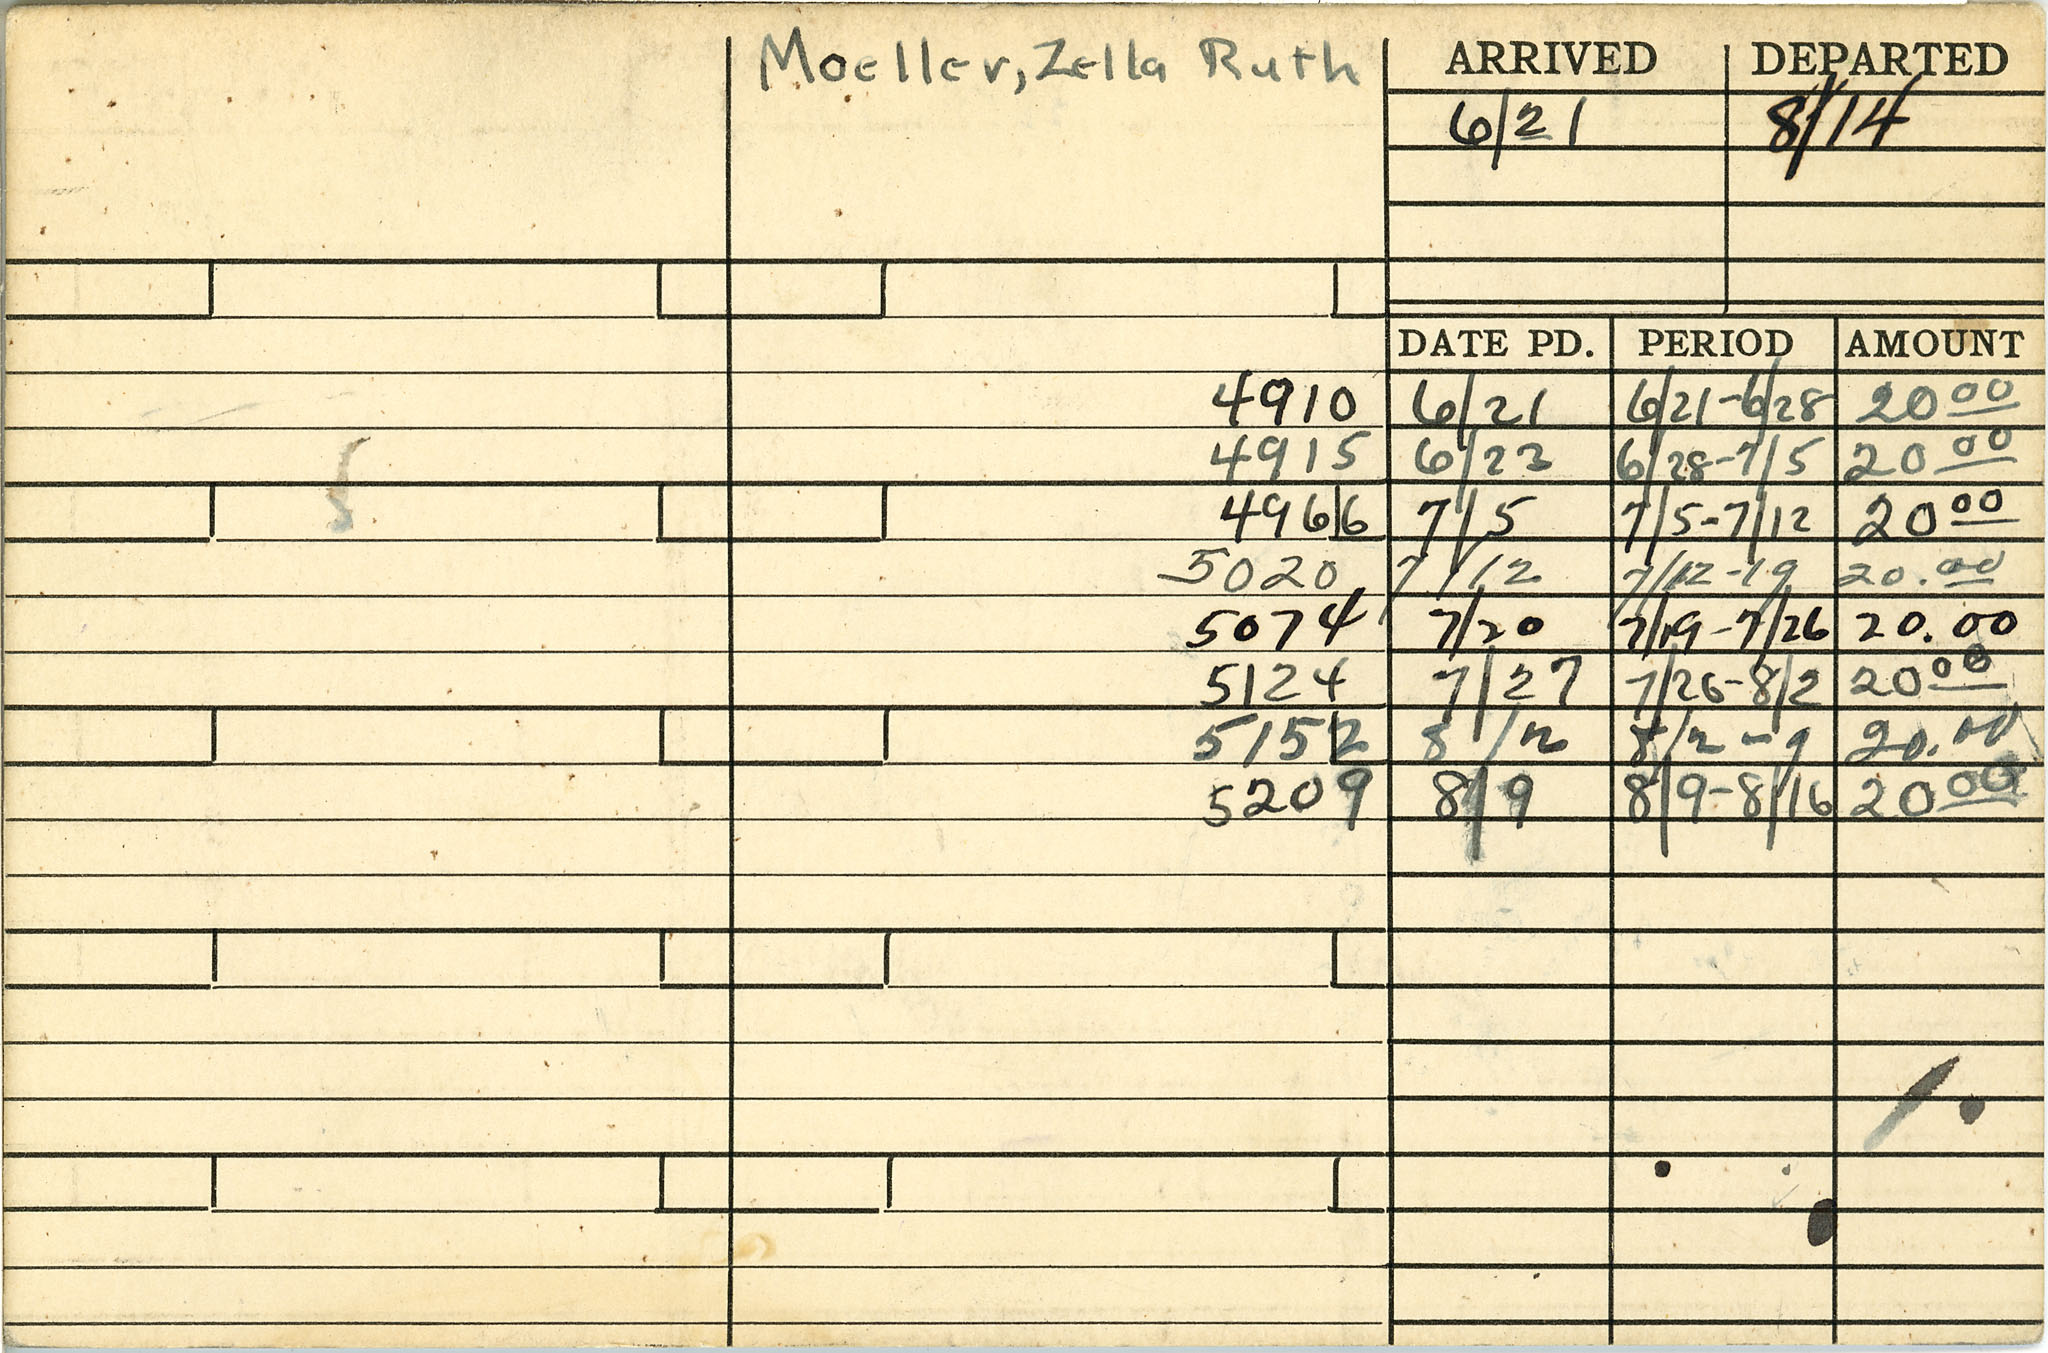 Moeller, Zella Ruth ARRIVED DEPARTED
6/21 8/14
DATE PD. PERIOD AMOUNT
4910 6/21 6/21-6/28 20 00
4915 6/23 6/28-7/5 20 00
4966 7/5 7/5-7/12 20 00
5020 7/12 7/12-19 20.00
5074 7/20 7/19-7/26 20.00
5124 7/27 7/26-8/2 20 00
5152 8/2 8/2-9 20.00
5209 8/9 8/9-8/16 20 00